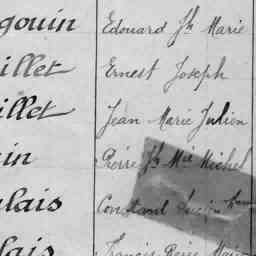 gouin Edouard Jh Marie
illet Ernest Joseph
illet Jean Marie Julien
in Pierre Jh Mie Michel
lais Constant
lais Francis Pierre Marie